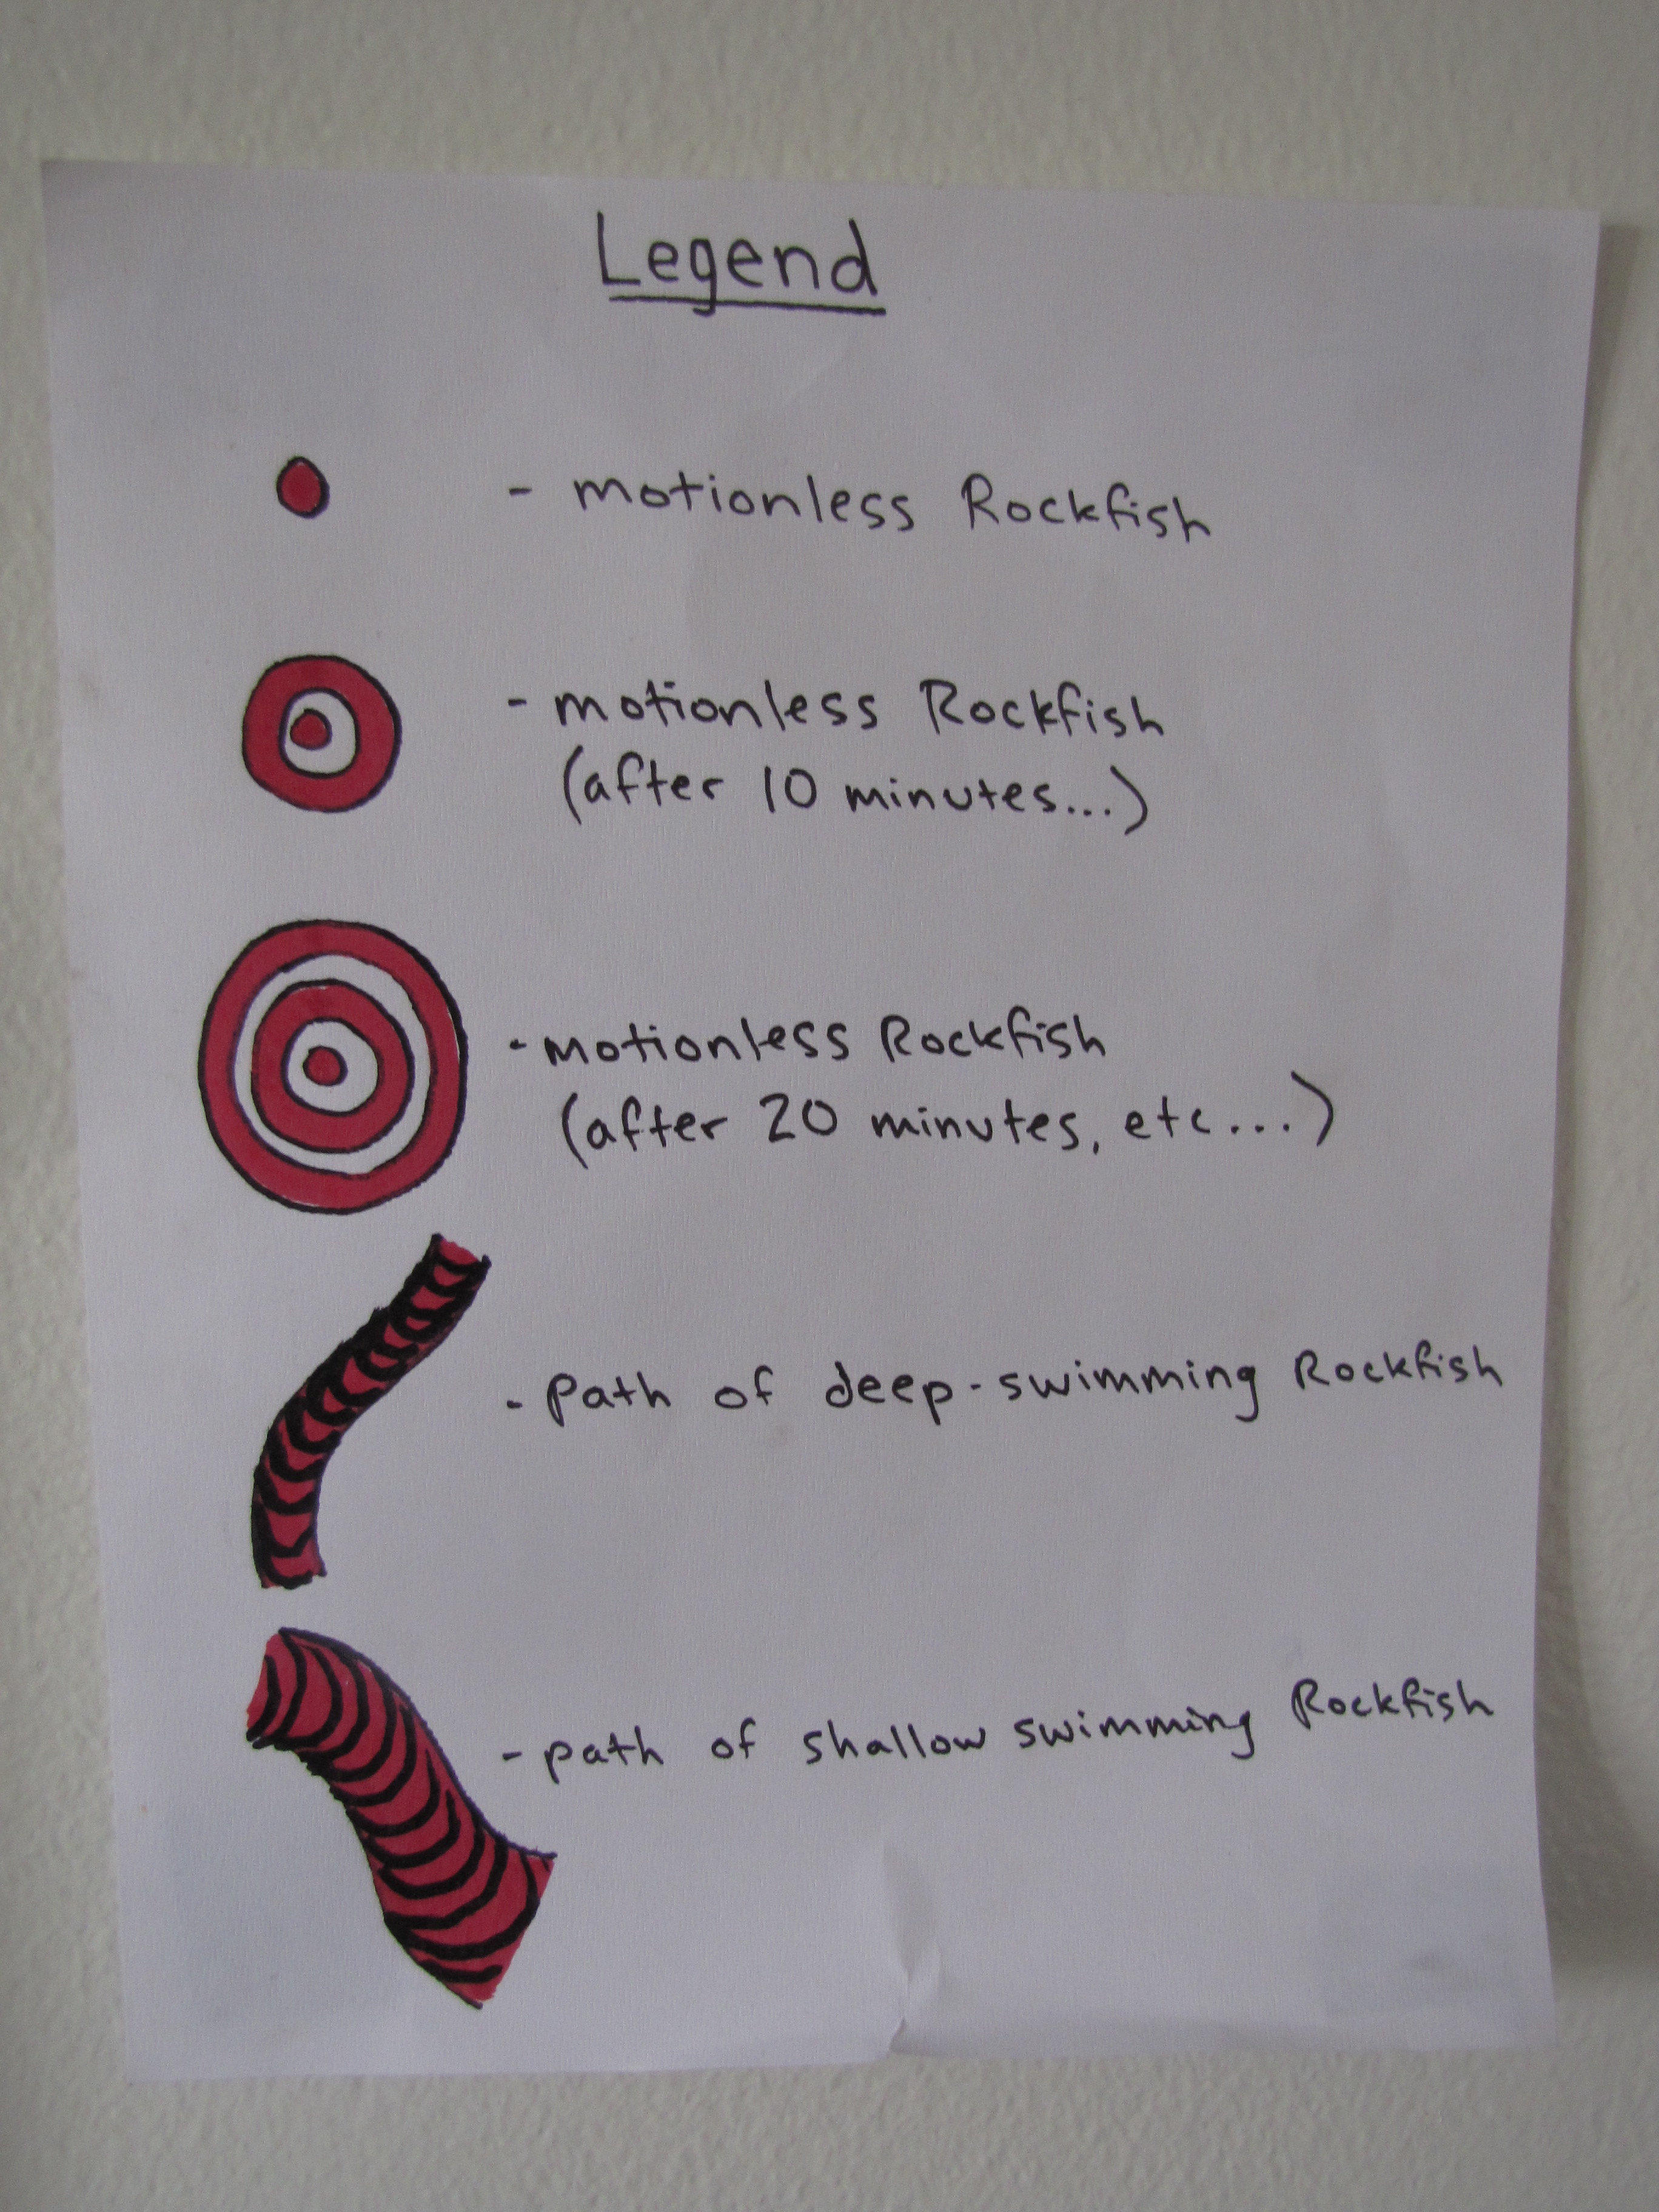 Legend
- motionless Rockfish
- motionless Rockfish
(after 10 minutes...)
- motionless Rockfish
(after 20 minutes, etc....)
- Path of deep-swimming Rockfish
- path of shallow swimming Rockfish